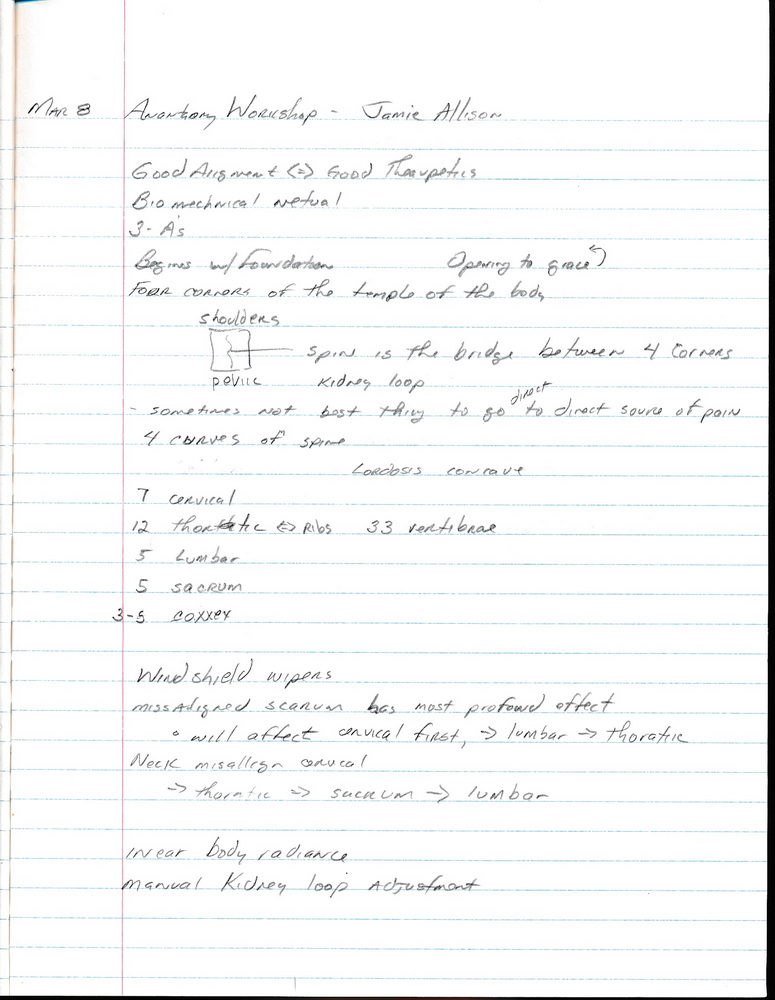 Mar 8 Anantomy Workshop - Jamie Allison
Good Aligment <=> Good Thearpetics
Bio mechnical netual
3- A's
Begines w/ Foundation Opening to grace
Four corners of the temple of the body
shoulders
spin is the bridge between 4 corners
pevlic Kidney loop
direct
- sometimes not best thing to go to direct source of pain
4 curves of spine
Lordosis concave
7 cervical
12 thoratic <=> Ribs 33 vertibrae
5 Lumbar
5 sacrum
3-5 coxxex
Windshield wipers
missAligned scarum has most profowd effect
° will affect cervical first, -> lumbar -> thoratic
Neck misallegn cervical
-> thoratic => sacrum -> lumbar
Inear body radiance
Manual Kidney loop Adjustment